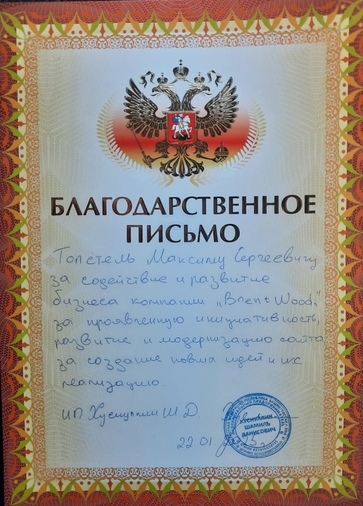 БЛАГОДАРСТВЕННОЕ
ПИСЬМО
Толстель Максиму Сергеевичу
за содействие и развитие
бизнеса компании „Brent Wood"
за проявленную инициативность,
развитие и модернизацию сайта,
за создание новых идей и их
реализацию
ИП Ш.Д.
22.01
ШАМИЛЬ